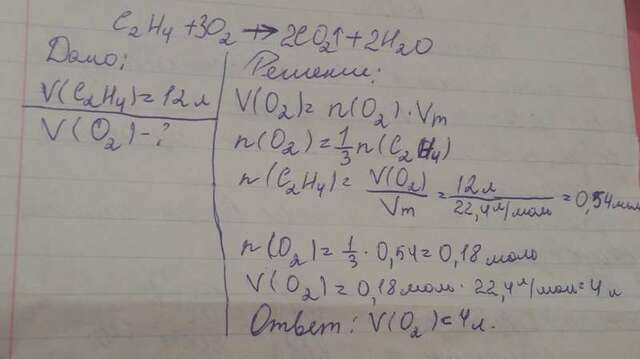 C₂H₄ + 3O₂ → 2CO₂↑ + 2H₂O
Дано:
V(C₂H₄) = 12 л
V(O₂) - ?
Решение:
V(O₂) = n(O₂) · Vm
n(O₂) = 1/3 n(C₂H₄)
n(C₂H₄) = V(O₂)/Vm = 12 л/22,4 л/моль = 0,54 моль
n(O₂) = 1/3 · 0,54 = 0,18 моль
V(O₂) = 0,18 моль · 22,4 л/моль = 4 л
Ответ: V(O₂) = 4 л.